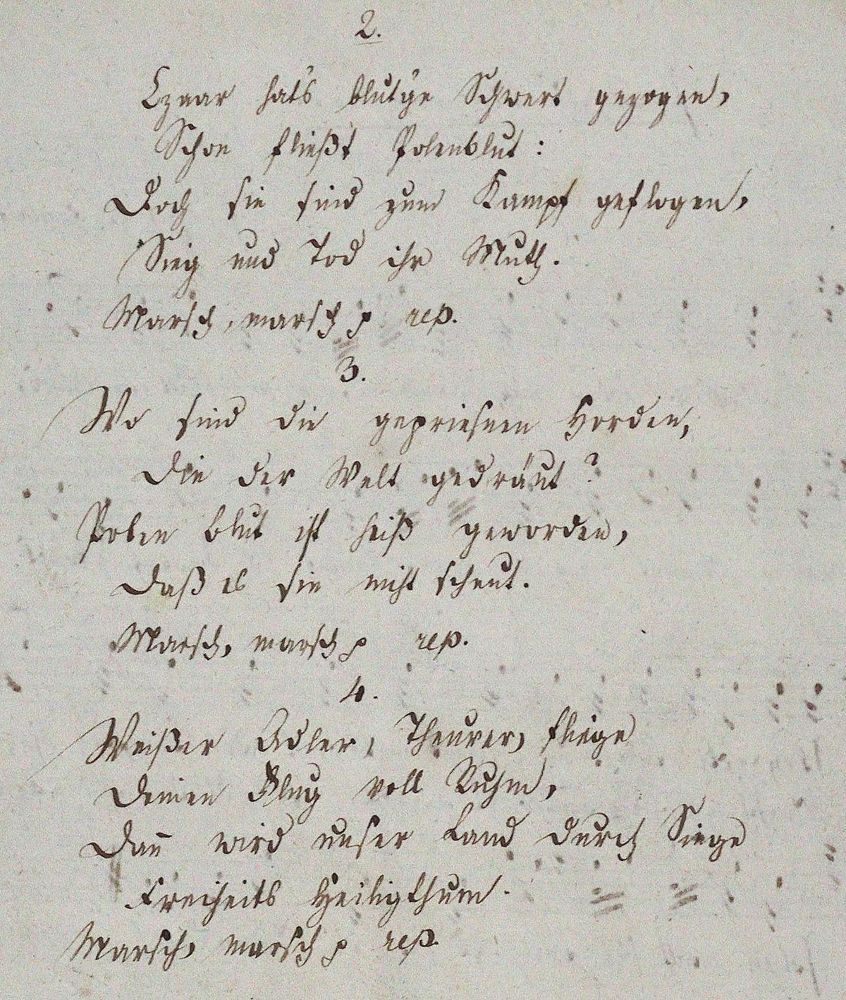 2.
Czaar hat's blut'ge Schwert gezogen,
Schon fließt Polenblut:
Doch sie sind zum Kampf geflogen,
Sieg und Tod ihr Muth.
Marsch, marsch p rep.
3.
Wo sind die gepries'nen Horden,
Die der Welt gedräut?
Polen blut ist heiß geworden,
Daß es sie nicht scheut.
Marsch, marsch p rep.
4.
Weißer Adler, Theurer, fliege
Deinen Flug voll Ruhm,
Dan̄ wird unser Land durch Siege
Freiheits Heiligthum.
Marsch, marsch p rep.